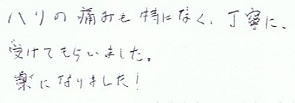 ハリの痛みも特になく、丁寧に、
受けてもらいました。
楽になりました!